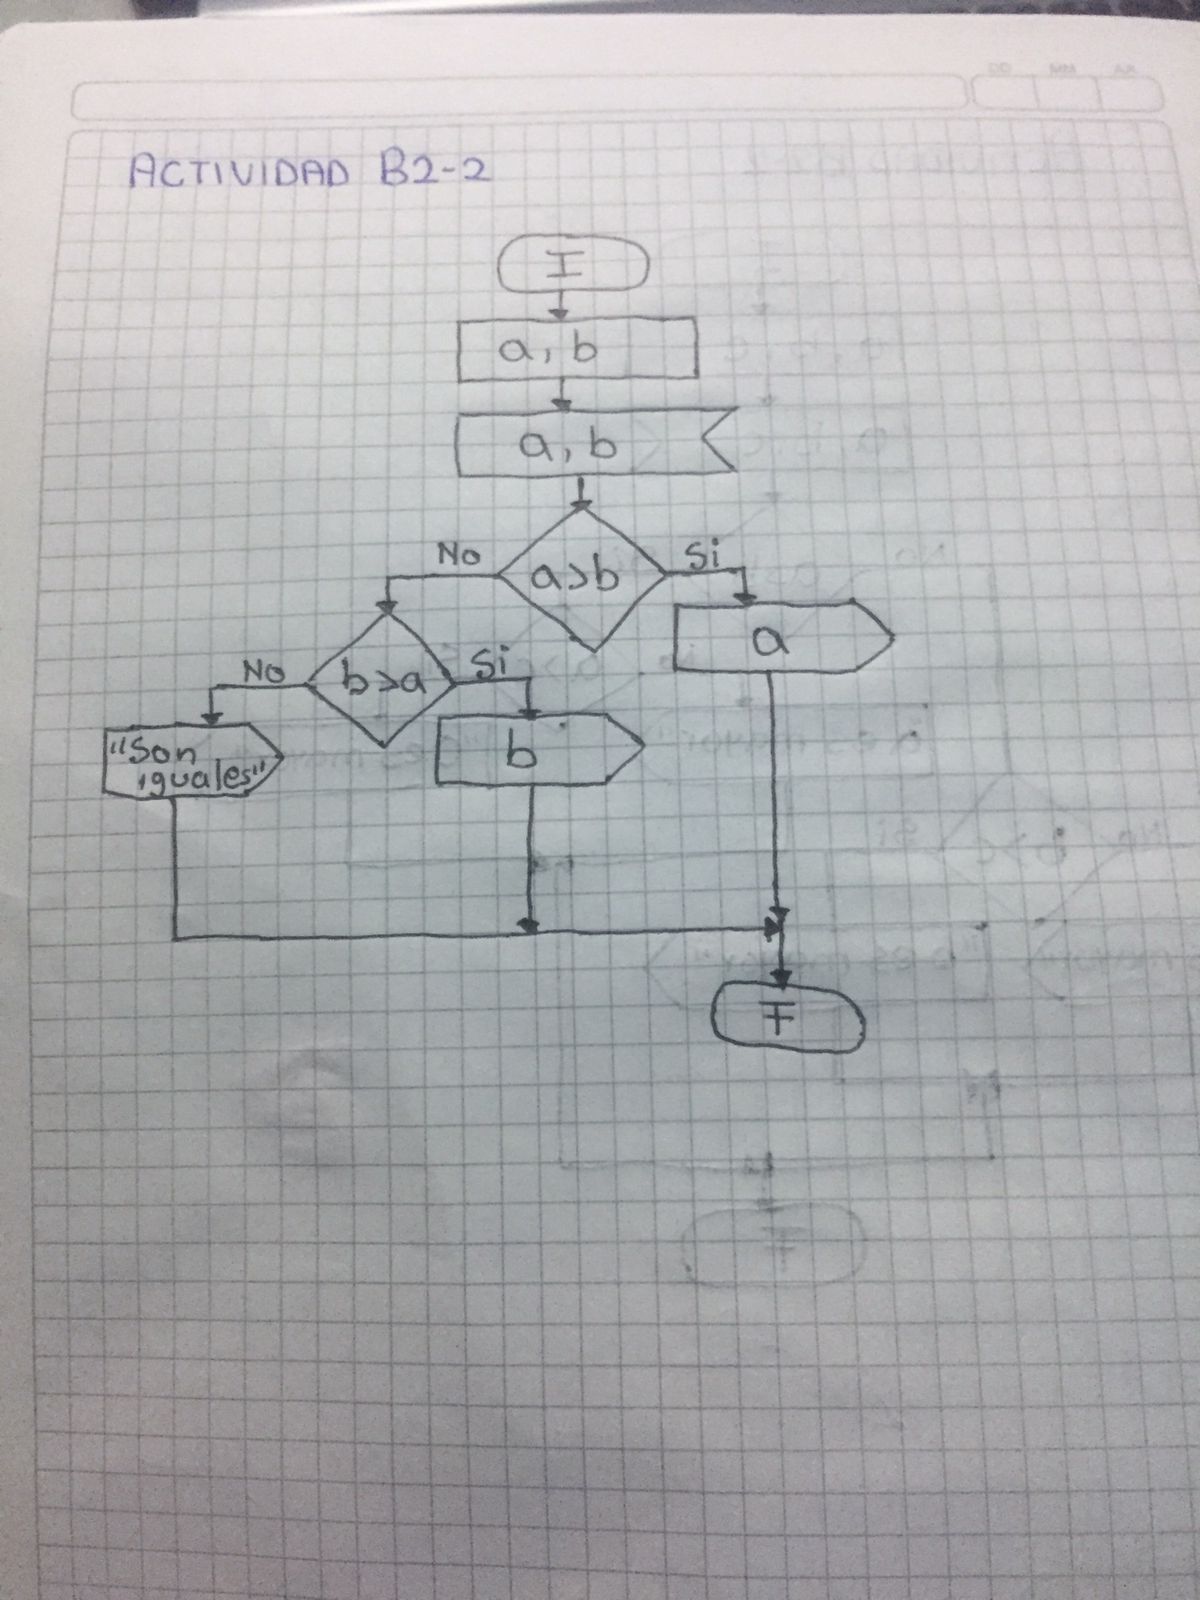 DD MM AA
ACTIVIDAD B2-2
I
a, b
a, b
No
a>b
Si
a
No
b>a
Si
"Son
iguales"
b
F